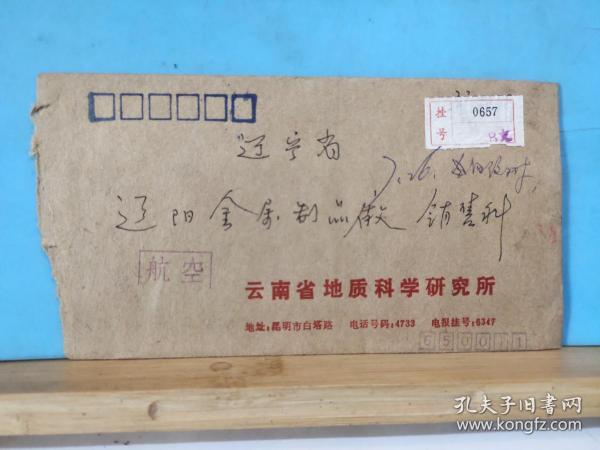 挂号 0657
辽宁省
7.26.
辽阳金属制品厂 销售科
航空
云南省地质科学研究所
地址:昆明市白塔路 电话号码:4733 电报挂号:6347
650011
孔夫子旧书网
www.kongfz.com